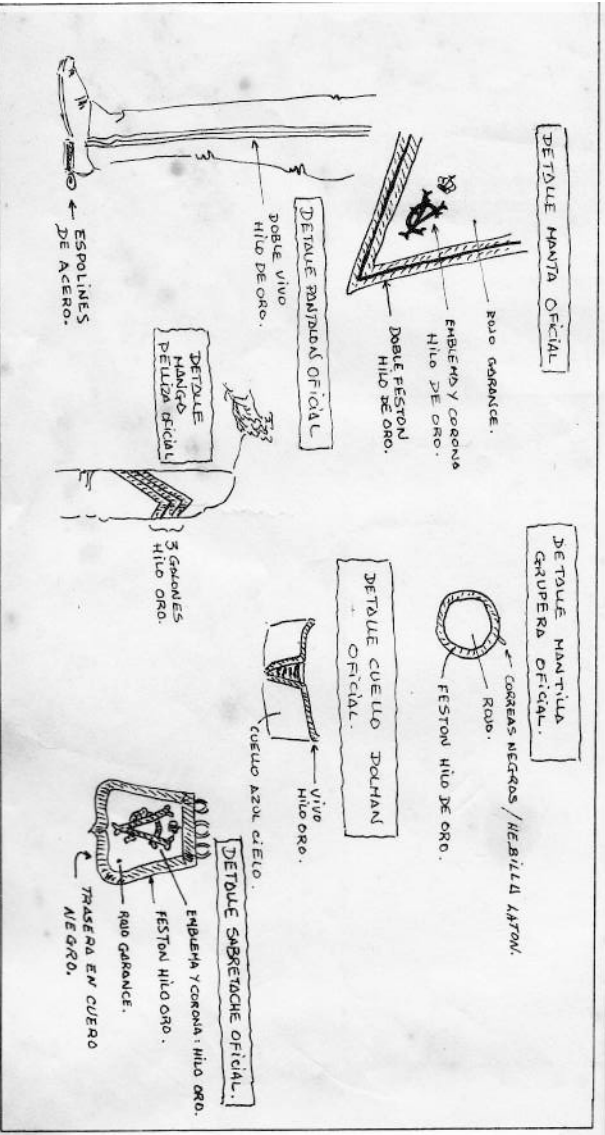 DETALLE MANTA OFICIAL
ROJO GARANCE.
EMBLEMA Y CORONA
HILO DE ORO.
DOBLE FESTON
HILO DE ORO.
DETALLE PANTALON OFICIAL
DOBLE VIVO
HILO DE ORO.
ESPOLINES
DE ACERO.
DETALLE
MANGA
PELLIZA OFICIAL
3 GALONES
HILO ORO.
DETALLE MANTILLA
GRUPERA OFICIAL.
CORREAS NEGRAS / HEBILLA LATON.
ROJO.
FESTON HILO DE ORO.
DETALLE CUELLO DOLMAN
OFICIAL.
VIVO
HILO ORO.
CUELLO AZUL CIELO.
DETALLE SABRETACHE OFICIAL.
EMBLEMA Y CORONA: HILO ORO.
FESTON HILO ORO.
ROJO GARANCE.
TRASERA EN CUERO
NEGRO.